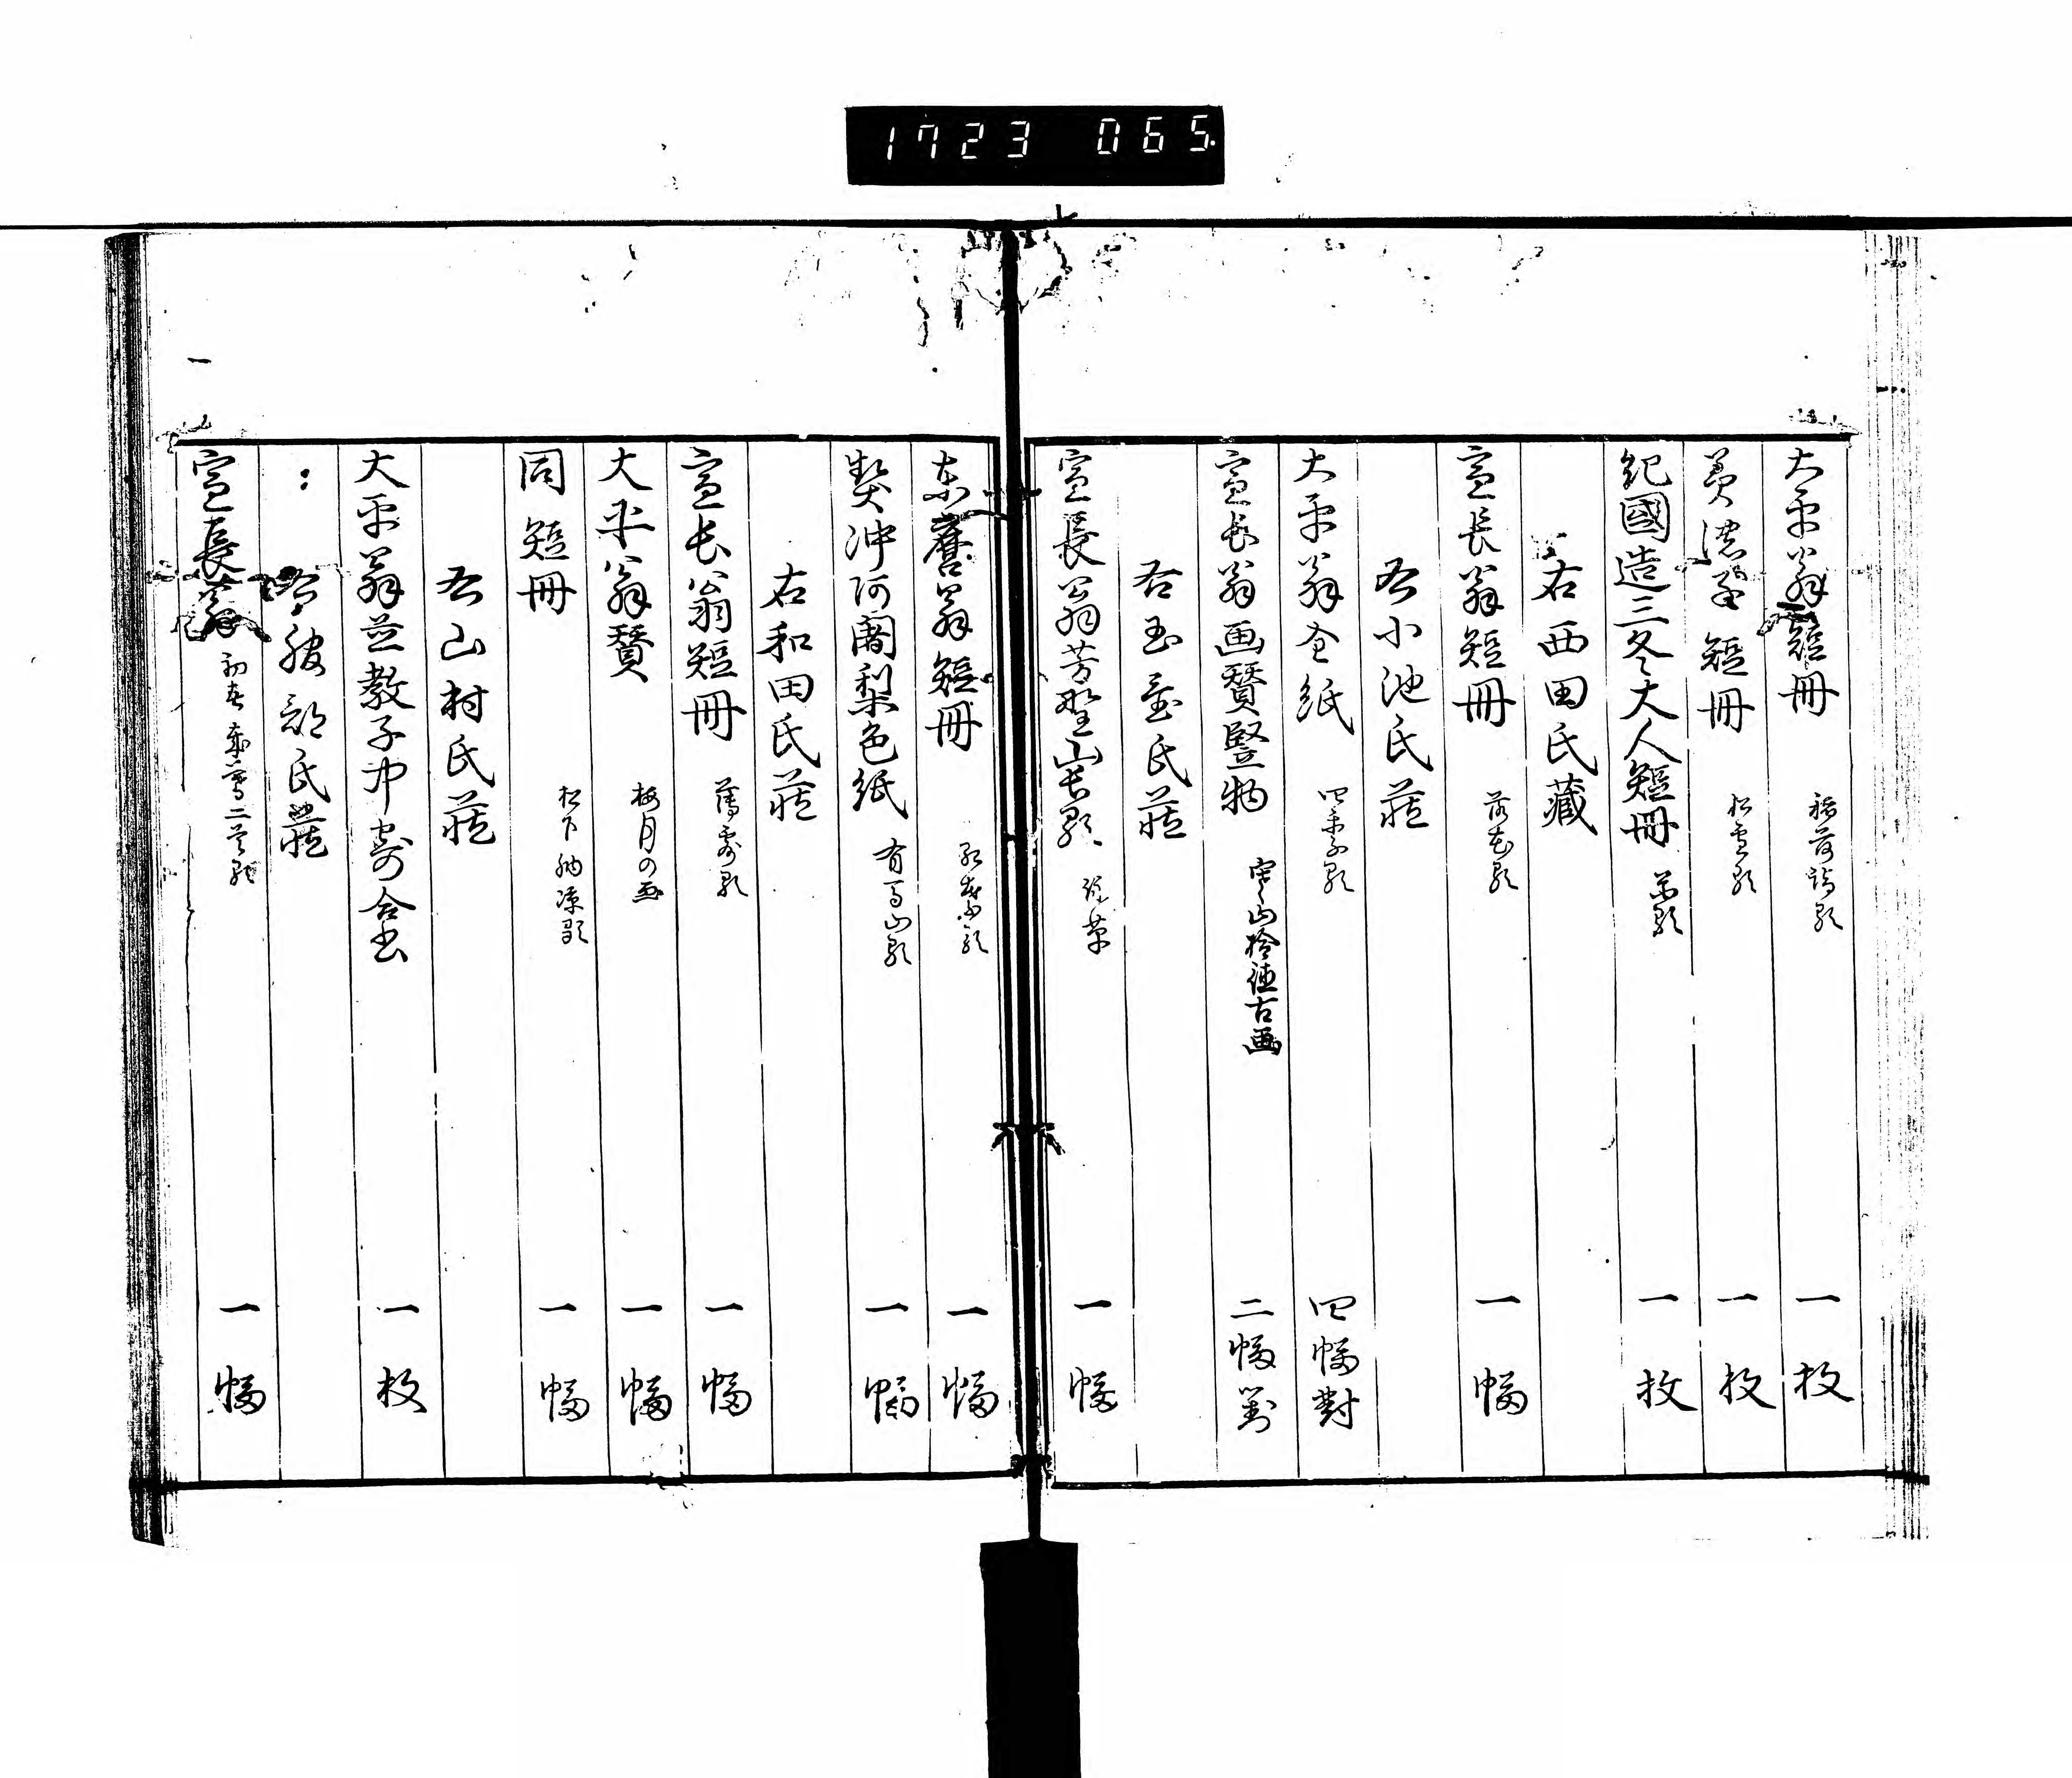 1723 065
大平翁短冊 稲荷詣歌 一枚
美濃 短冊 松雪歌 一枚
紀國造三冬大人短冊 歌 一枚
右西田氏藏
宣長翁短冊 落花歌 一幅
右小池氏蔵
大平翁全紙 四季歌 四幅對
宣長翁画賛豎物 寒山拾得古画 二幅對
右玉置氏蔵
宣長翁芳野山長歌 一幅
東麿翁短冊 歌 一幅
契沖阿闍梨色紙 有馬山歌 一幅
右和田氏蔵
宣長翁短冊 薄歌 一幅
大平翁賛 梅月の画 一幅
同短冊 松下納凉歌 一幅
右山村氏蔵
大平翁並教子中寄合書 一枚
服部氏蔵
宣長翁 初春 二首歌 一幅